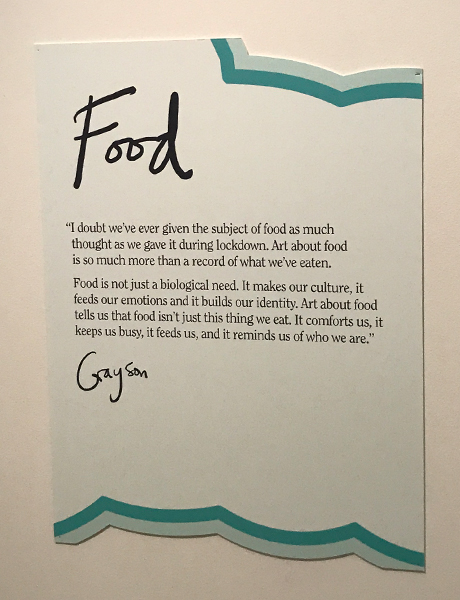 Food
“I doubt we’ve ever given the subject of food as much
thought as we gave it during lockdown. Art about food
is so much more than a record of what we’ve eaten.
Food is not just a biological need. It makes our culture, it
feeds our emotions and it builds our identity. Art about food
tells us that food isn’t just this thing we eat. It comforts us, it
keeps us busy, it feeds us, and it reminds us of who we are.”
Grayson